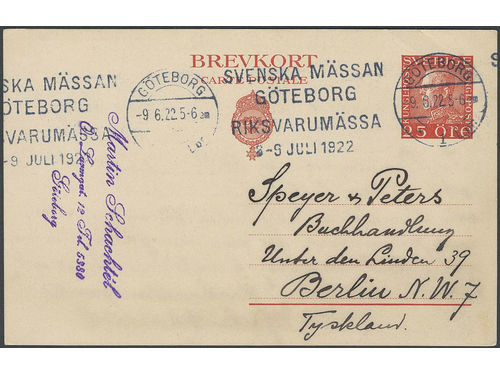 BREVKORT
CARTE POSTALE
SKA MÄSSAN
ÖTEBORG
SVARUMÄSSA
-9 JULI 1922
GÖTEBORG
-9 6.22.5-6
SVENSKA MÄSSAN
GÖTEBORG
RIKSVARUMÄSSA
3-9 JULI 1922
GÖTEBORG
-9 6.22.5-6
1
SVERIGE
25 ÖRE
S
Martin Schachtel
12 Tel. 5380
Göteborg
Speyer & Peters
Buchhandlung
Unter den Linden 39
Berlin N.W. 7
Tyskland.